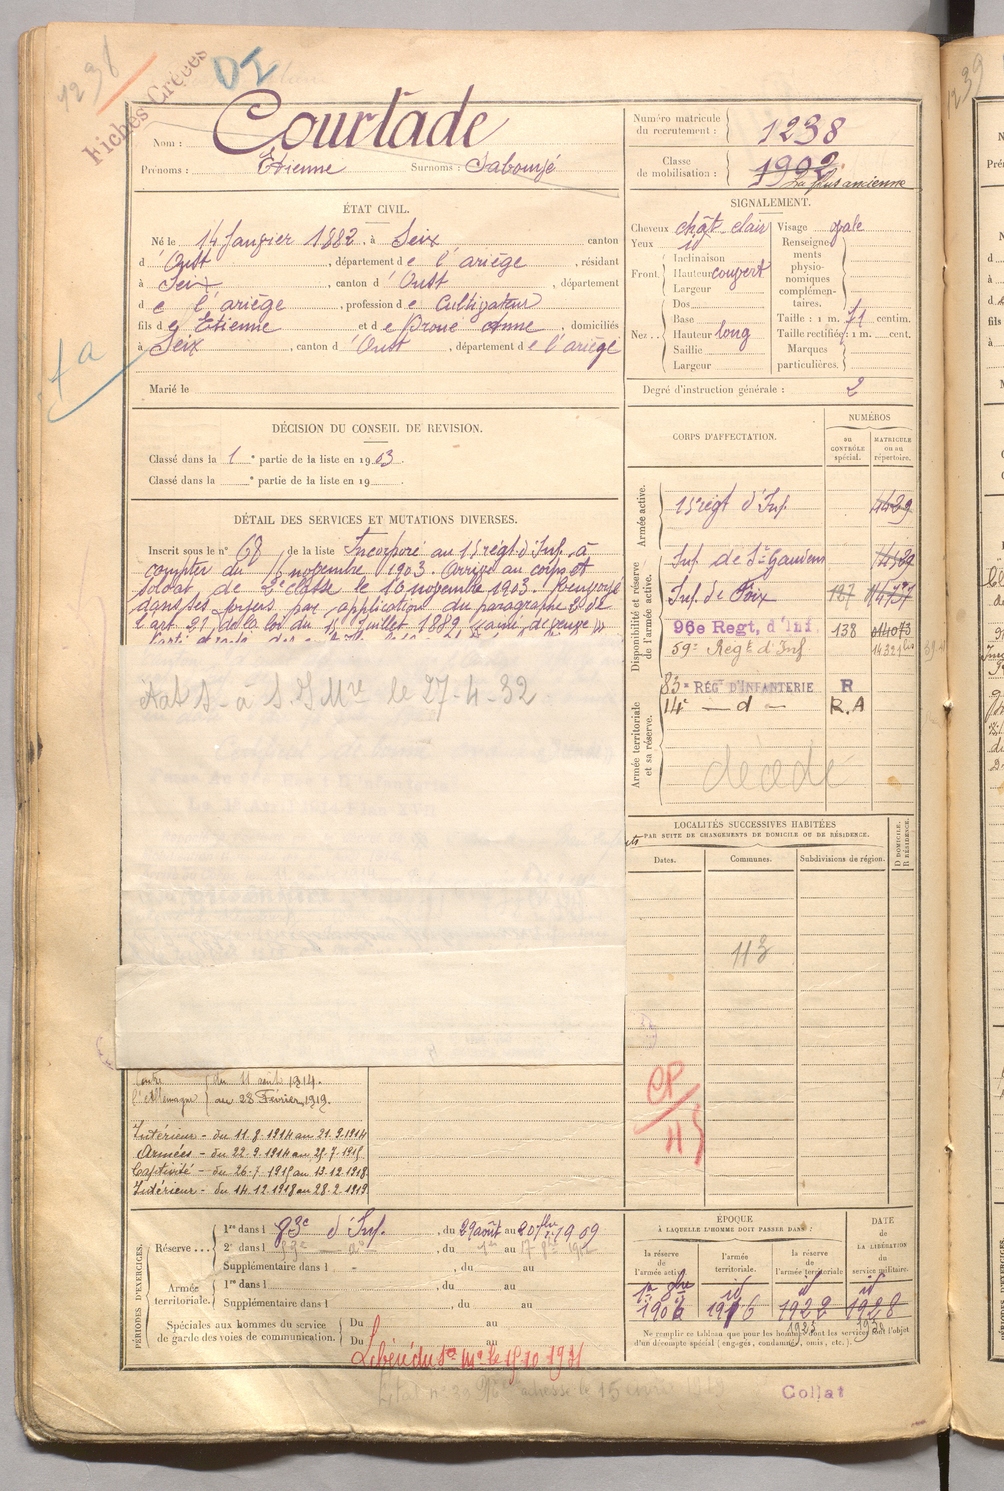 1236
Fiches Créées
DI
Nom : Courtade
Prénoms : Etienne Surnoms : Sabounjé
Numéro matricule du recrutement : 1238
Classe de mobilisation : 1902
La plus ancienne
ÉTAT CIVIL.
Né le 14 Janvier 1882, à Seix canton
d'Oust, département de l'ariège, résidant
à Seix, canton d'Oust, département
de l'ariège, profession de Cultivateur
fils de Etienne et de Proué Anne, domiciliés
à Seix, canton d'Oust, département de l'ariège
Marié le
fa
SIGNALEMENT.
Cheveux chât clair Visage ovale
Yeux id
Renseignements physionomiques complémentaires.
Front. Inclinaison
Hauteur couvert
Largeur
Nez.. Dos
Base
Hauteur long
Saillie
Largeur
Taille : 1 m. 71 centim.
Taille rectifiée : 1 m. cent.
Marques particulières.
Degré d'instruction générale : 2
DÉCISION DU CONSEIL DE REVISION.
Classé dans la 1e partie de la liste en 1903.
Classé dans la e partie de la liste en 19
DÉTAIL DES SERVICES ET MUTATIONS DIVERSES.
Inscrit sous le n° 67 de la liste Incorporé au 15 régt d'Inf. à
compter du 16 novembre 1903. Arrivé au corps et
soldat de 2e classe le 16 novembre 1903.
dans ses foyers par application du paragraphe 2 de
l'art. 21 de la loi du 15 Juillet 1889
le 27-4-32
CORPS D'AFFECTATION.
NUMÉROS
au CONTRÔLE spécial.
MATRICULE ou au répertoire.
Armée active.
15 régt d'Inf. 4429
Disponibilité et réserve de l'armée active.
Inf. de St Gaudens
Inf. de Foix 127
96e Regt, d'Inf. 138 014073
59e Regt d'Inf 14321bis
Armée territoriale et sa réserve.
83e RÉGt D'INFANTERIE R
14e — d — R.A
décédé
LOCALITÉS SUCCESSIVES HABITÉES
PAR SUITE DE CHANGEMENTS DE DOMICILE OU DE RÉSIDENCE.
Dates. Communes. Subdivisions de région.
D DOMICILE. R RÉSIDENCE.
113
CP/113
Contre l'Allemagne du 11 août 1914.
au 28 Février 1919.
Intérieur - du 11.8.1914 au 21.9.1914
Armées - du 22.9.1914 au 25.7.1915
Captivité - du 26.7.1915 au 13.12.1918
Intérieur - du 14.12.1918 au 28.2.1919
PÉRIODES D'EXERCICES.
Réserve... 1re dans l 83e d'Inf., du 29 août au 20 7bre 1909
2e dans l 83e — do, du au
Supplémentaire dans l , du au
Armée territoriale. 1re dans l , du au
Supplémentaire dans l , du au
Spéciales aux hommes du service de garde des voies de communication. Du au
Du au
Libéré du Sce Mre le 15-10 1931
ÉPOQUE
À LAQUELLE L'HOMME DOIT PASSER DANS :
la réserve de l'armée active
l'armée territoriale.
la réserve de l'armée territoriale
DATE de LA LIBÉRATION du service militaire.
1er 9bre id id id
1906 1916 1922 1928
Ne remplir ce tableau que pour les hommes dont les services font l'objet
d'un décompte spécial (engagés, condamnés, omis, etc.).
Collat
1239